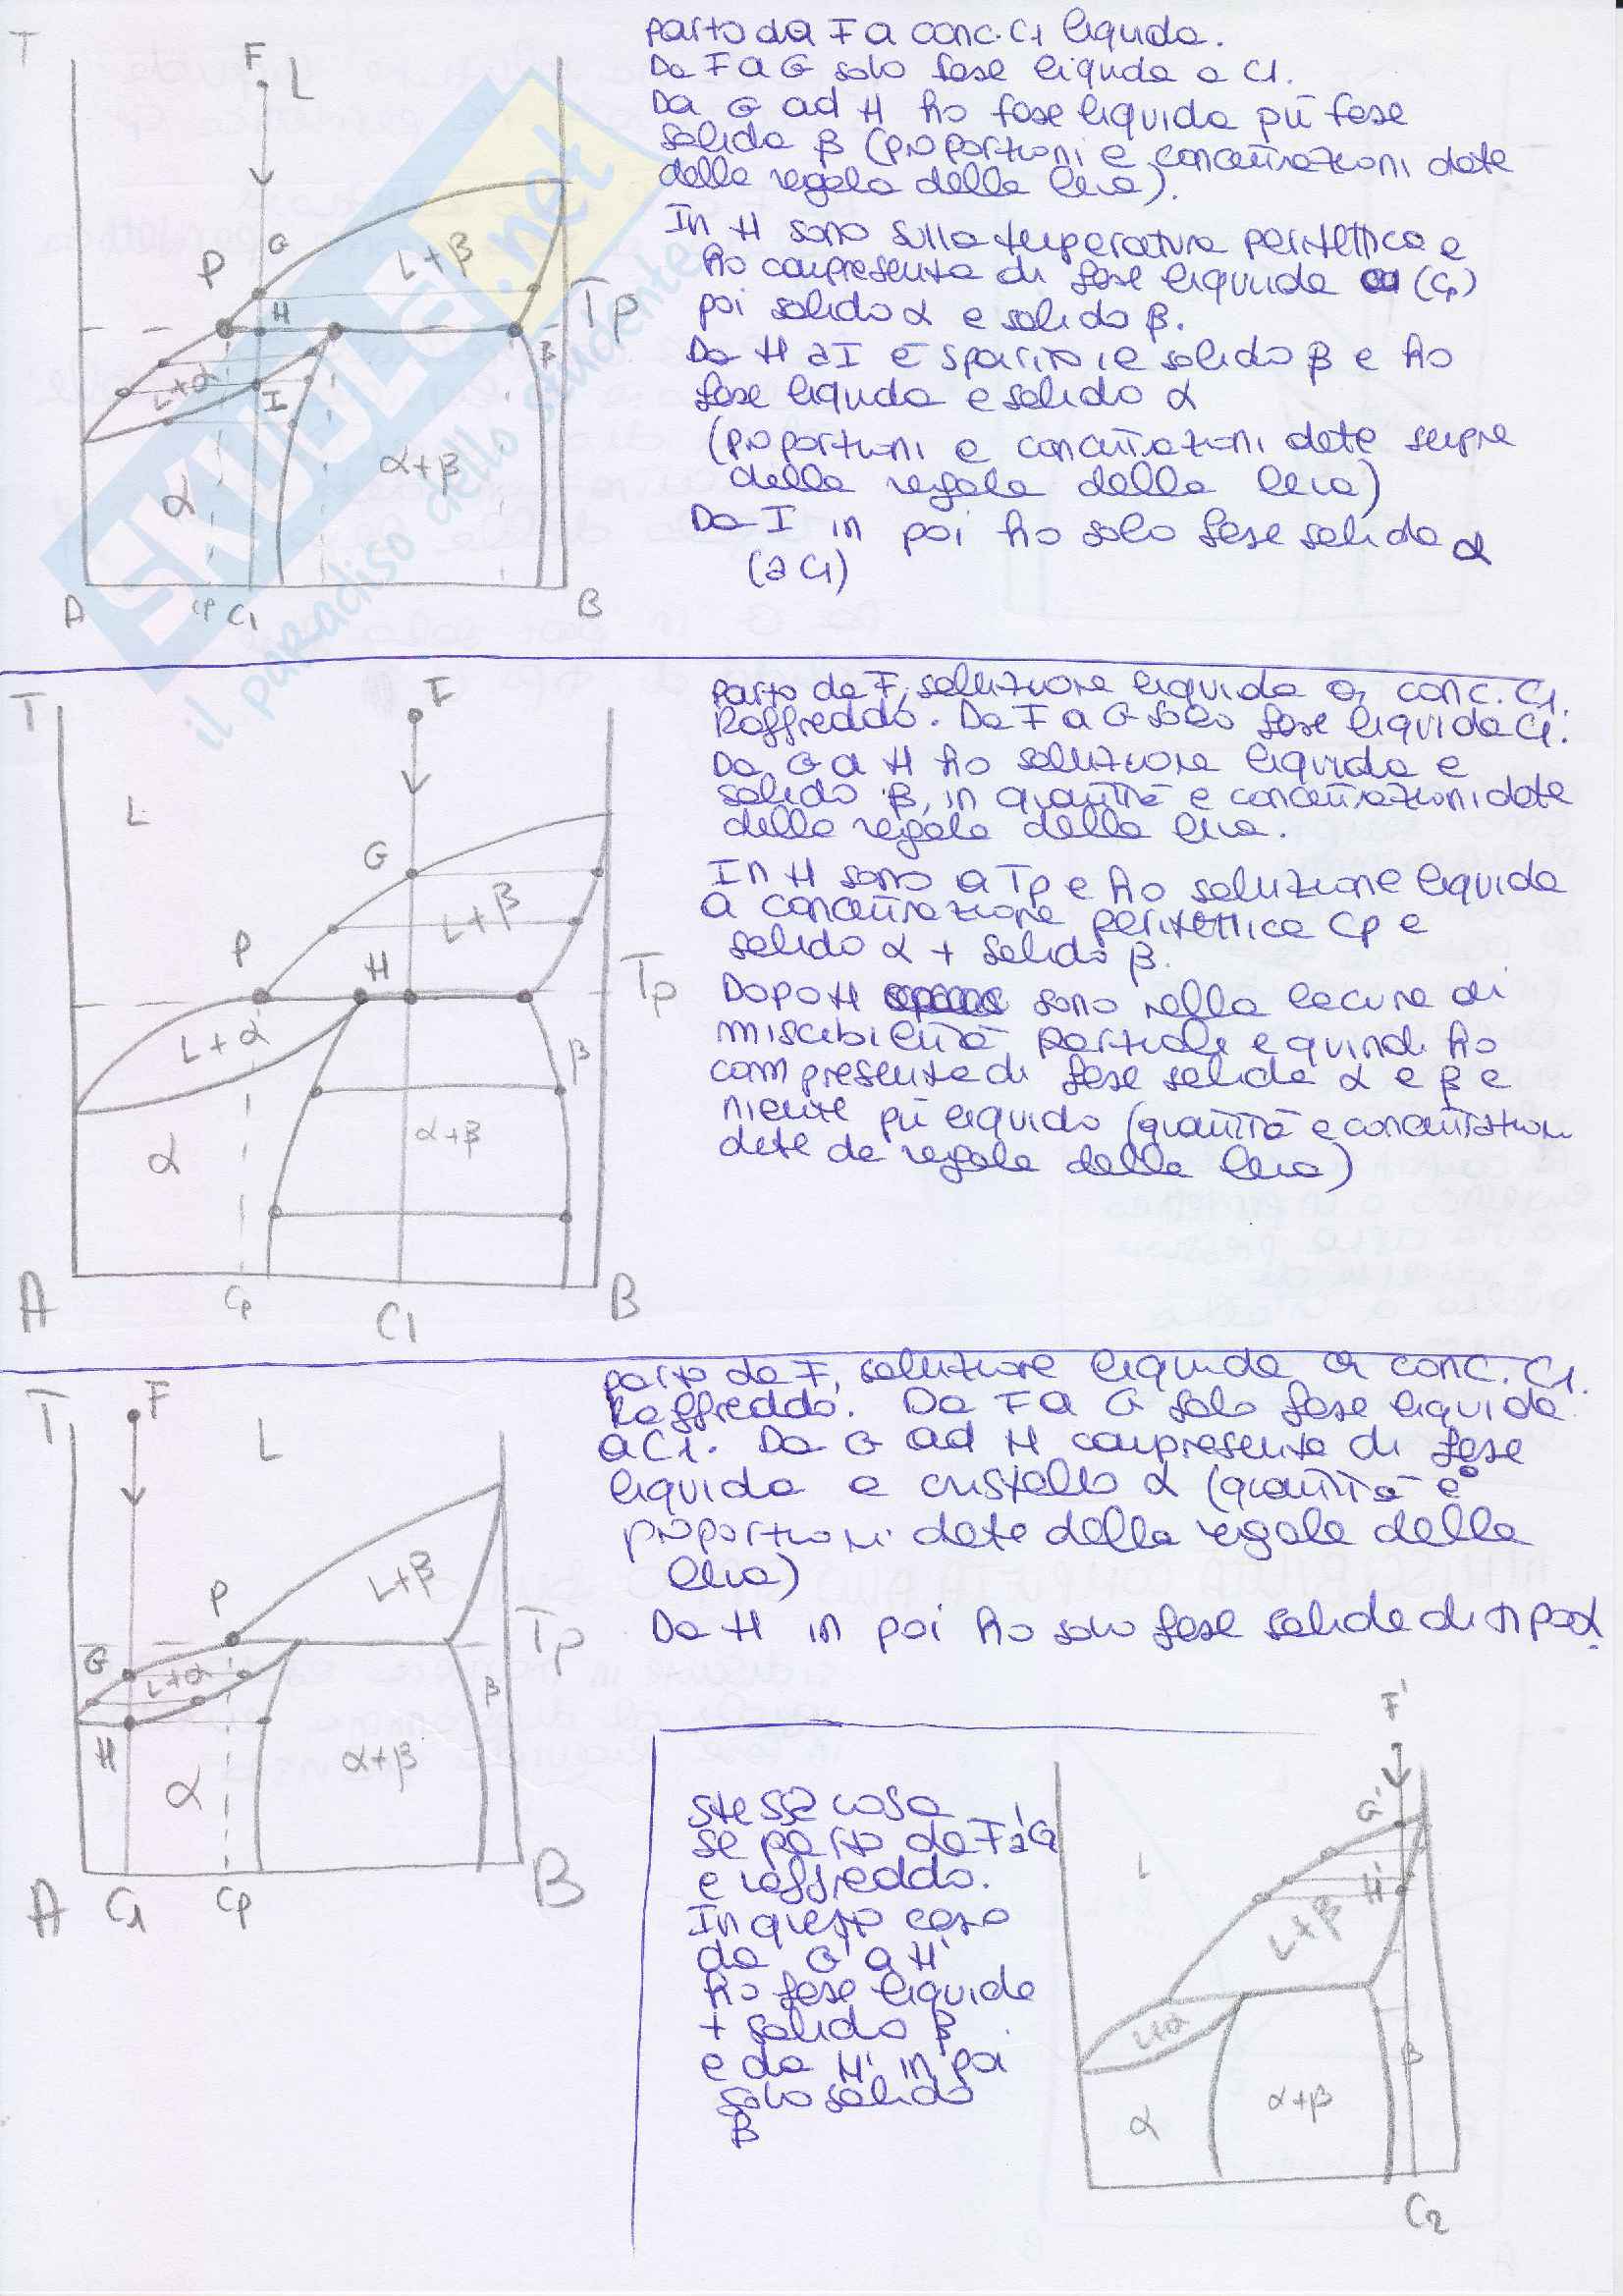 T
F
L
parto da F a conc. C1 liquida.
Da F a G solo fase liquida a C1.
Da G ad H ho fase liquida più fase
solida β (proporzioni e concentrazioni date
dalla regola della leva).
In H sono sulla temperatura peritettica e
ho compresenza di fase liquida (Cp)
poi solido α e solido β.
Da H a I è sparito il solido β e ho
fase liquida e solido α
(proporzioni e concentrazioni date sempre
dalla regola della leva)
Da I in poi ho solo fase solida α
(a C1)
G
P
H
L+β
Tp
β
L+α
I
α+β
α
A
Cp
C1
B
SKUOLA.net
il paradiso dello studente
T
F
L
parto da F, soluzione liquida a conc. C1.
Raffreddo. Da F a G solo fase liquida C1.
Da G a H ho soluzione liquida e
solido β, in quantità e concentrazioni date
dalla regola della leva.
In H sono a Tp e ho soluzione liquida
a concentrazione peritettica Cp e
solido α + solido β.
Dopo H sono nella lacuna di
miscibilità parziale e quindi ho
compresenza di fase solida α e β e
niente più liquido (quantità e concentrazioni
date da regola della leva)
G
P
H
L+β
Tp
L+α
β
α
α+β
A
Cp
C1
B
T
F
L
parto da F, soluzione liquida a conc. C1.
Raffreddo. Da F a G solo fase liquida
a C1. Da G ad H compresenza di fase
liquida e cristallo α (quantità e
proporzioni date dalla regola della
leva)
Da H in poi ho solo fase solida di tipo α.
P
L+β
Tp
G
L+α
H
β
α
α+β
A
C1
Cp
B
Stessa cosa
se parto da F' a G'
e raffreddo.
In questo caso
da G' a H'
ho fase liquida
+ solido β
e da H' in poi
solo solido
β
F'
G'
L
H'
L+β
L+α
β
α
α+β
C2